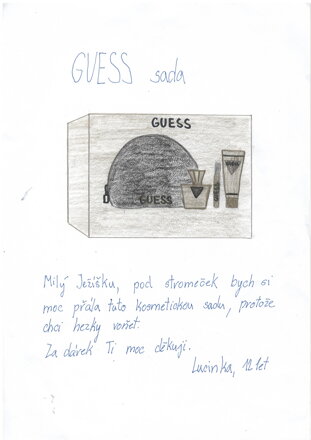 GUESS sada
GUESS
GUESS
Milý Ježíšku, pod stromeček bych si
moc přála tuto kosmetickou sadu, protože
chci hezky voňet.
Za dárek Ti moc děkuji.
Lucinka, 12 let